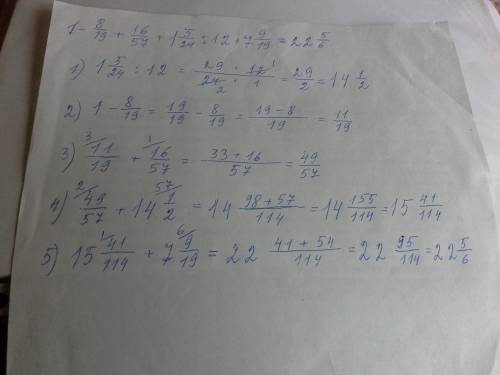 1 - 8/19 + 16/57 + 1 5/24 : 12 + 7 9/19 = 22 5/6
1) 1 5/24 : 12 = 29/24 2 · 12 1/1 = 29/2 = 14 1/2
2) 1 - 8/19 = 19/19 - 8/19 = 19-8/19 = 11/19
3) 3/ 11/19 + 1/ 16/57 = 33+16/57 = 49/57
4) 2/ 49/57 + 14 57/ 1/2 = 14 98+57/114 = 14 155/114 = 15 41/114
5) 15 1/ 41/114 + 7 6/ 9/19 = 22 41+54/114 = 22 95/114 = 22 5/6